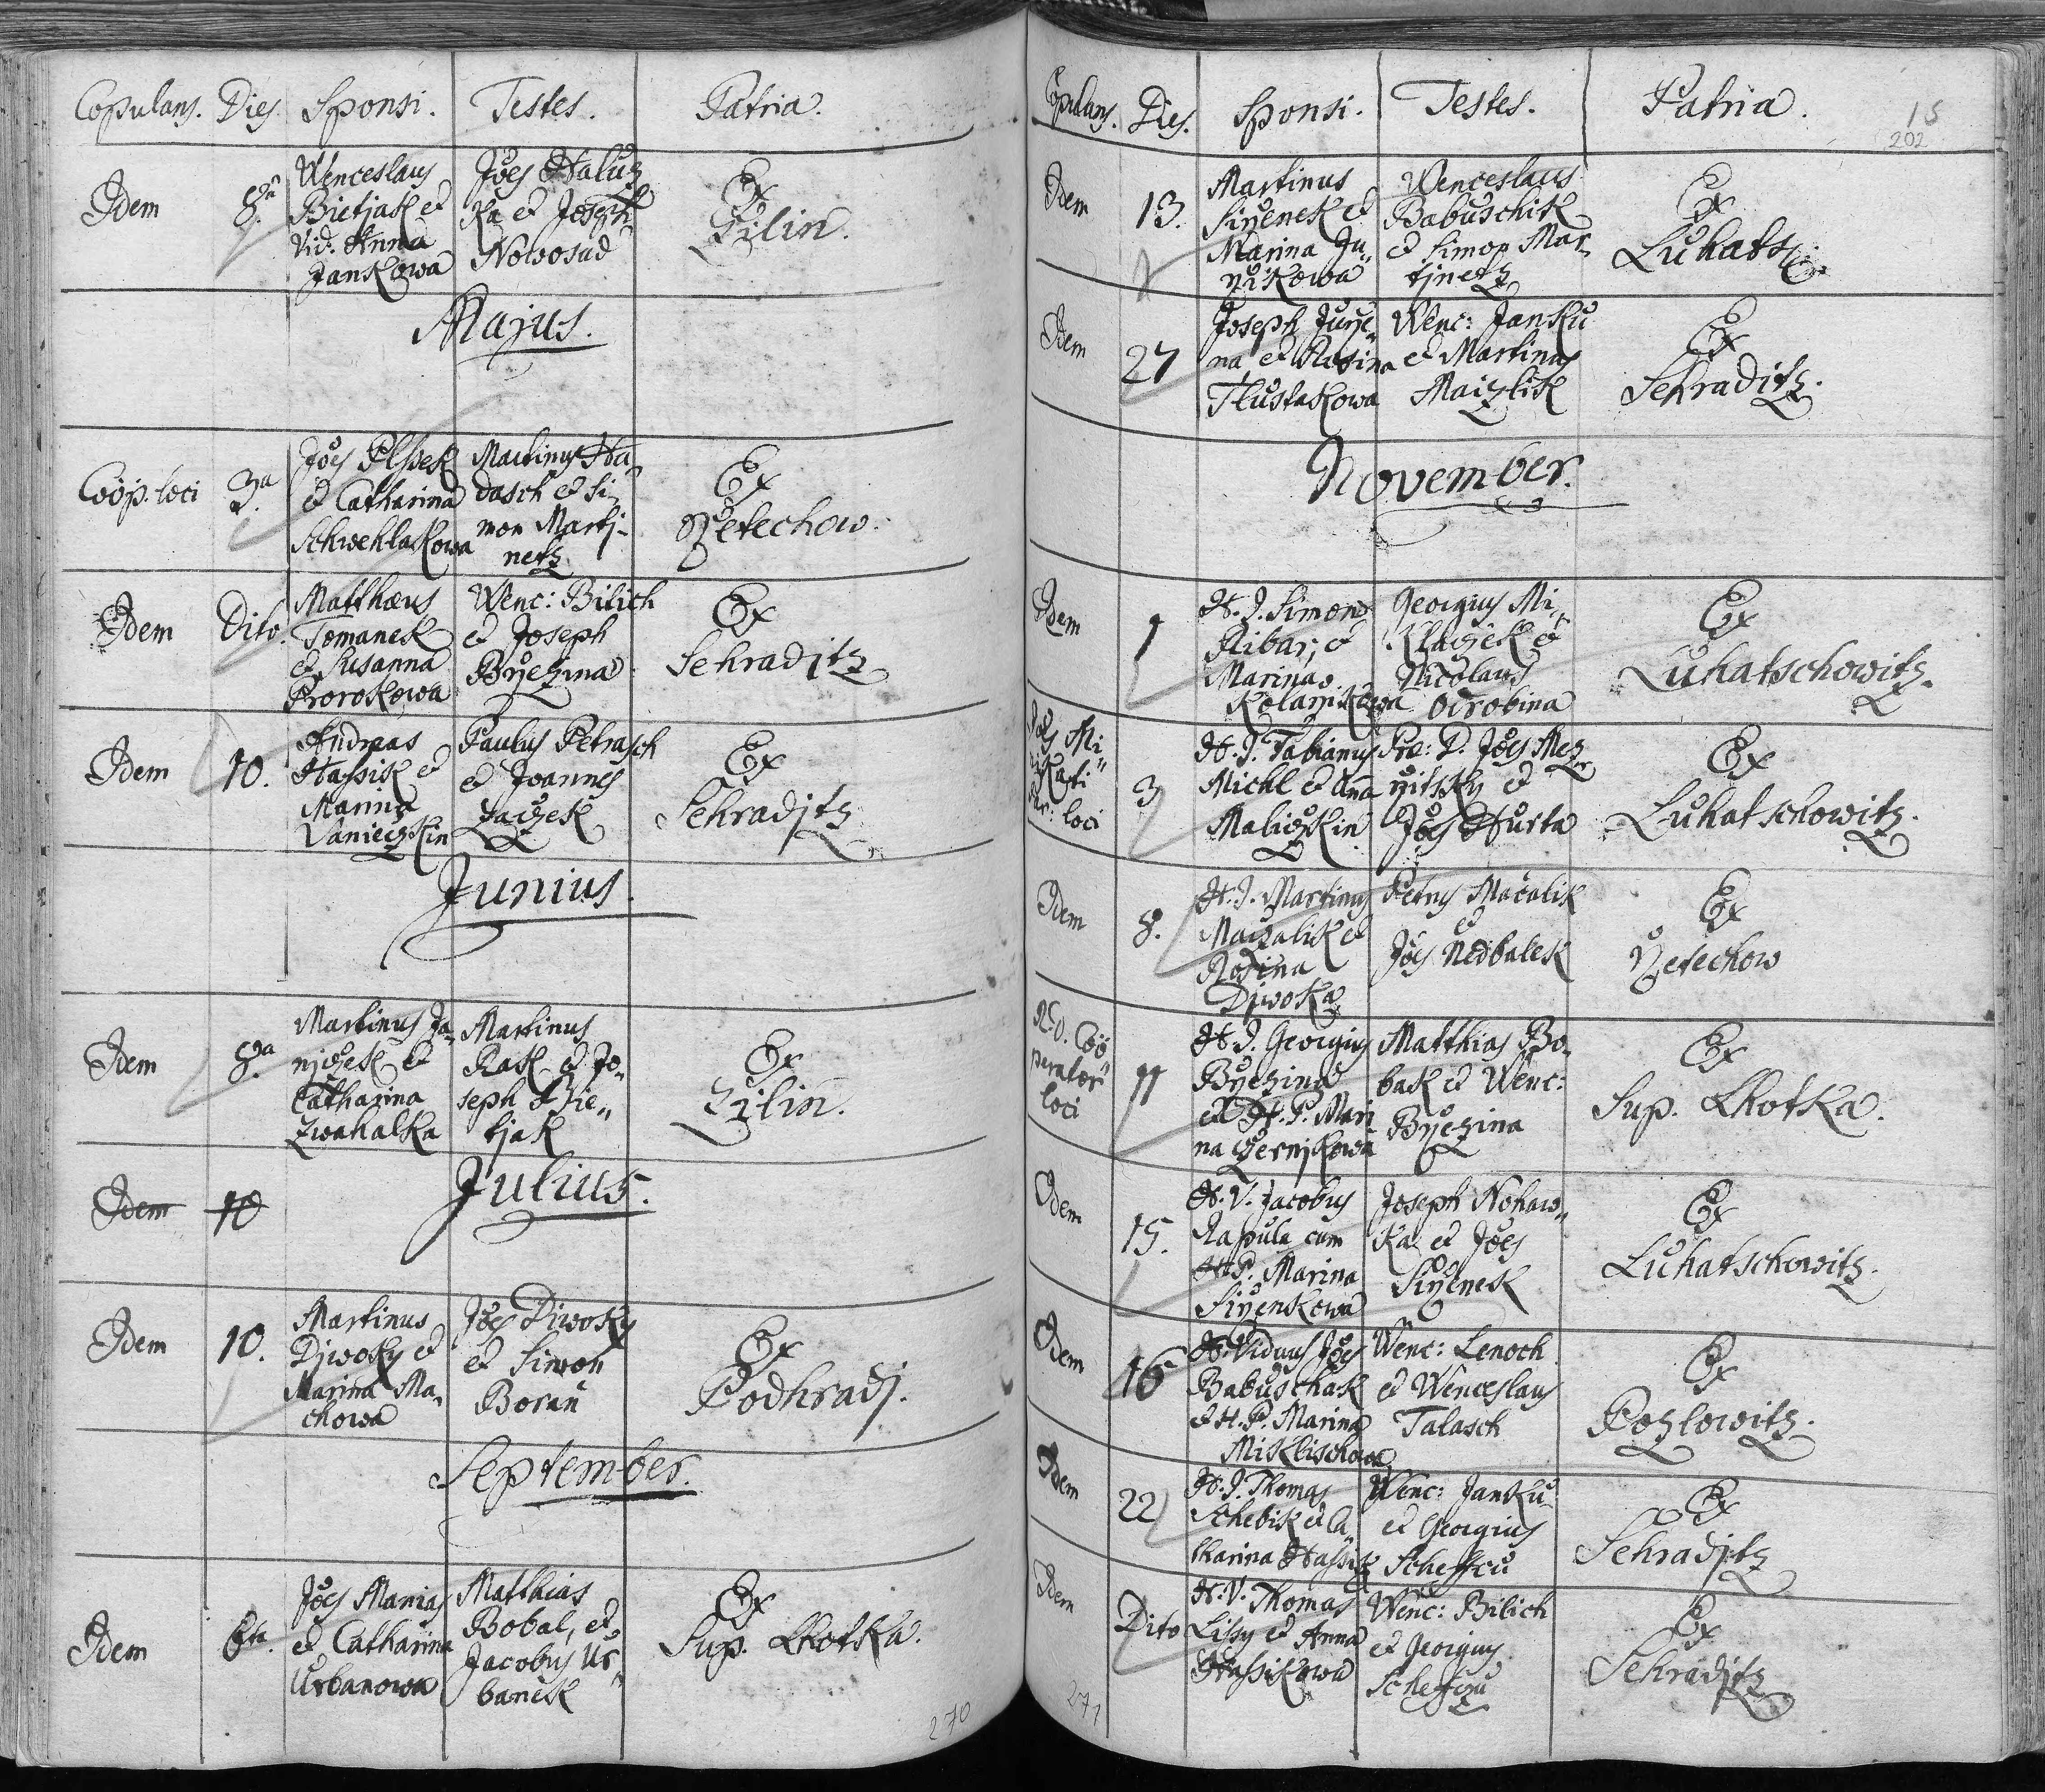 Copulans. Dies Sponsi. Testes. Patria.
Idem 8a Wenceslaus Bietjak et Vid: Anna Jankowa
Joes Haluz
ka et Joseph
Nowosad
Ex
Zilin.
Majus.
Coop. loci 3a
Joes Plssek
et Catharina
Schwehlakowa
Martinus Hu
dasch et Si
mon Martj
netz
Ex
Rzetechow.
Idem Dito
Matthaeus
Tomanek
et Susanna
Prorokowa
Wenc: Bilich
et Joseph
Brzezina
Ex
Sehraditz
Idem 10.
Andreas
Hassik et
Marina
Vanieczkin
Paulus Petrasch
et Joannes
Ex
Sehraditz
Junius.
Idem 8a
Martinus Ja
njczek et
Catharina
Zwahalka
Martinus
Rak et Jo
seph Bie
tjak
Ex
Zilin.
Idem 10
Julius.
Idem 10.
Martinus
Djwoky et
Marina Ma
chowa
Joes Diwoky
et Simon
Boran
Ex
Podhradj.
September.
Idem 6ta.
Joes Manias
et Catharina
Urbanowa
Matthias
Bobal, et
Jacobus Ur
banek
Ex
Sup. Lhotka.
270
Copulans. Dies. Sponsi. Testes. Patria.
15
202
Idem 13.
Martinus
Sirzenek et
Marina Ju
rzikowa
Wenceslaus
Babuschik
et Simon Mar
tjnetz
Ex
Luhatsch:
Idem 27
Joseph Jurze
na et Rosina
Tlustakowa
Wenc: Janku
et Martinus
Maizlik
Ex
Sehraditz.
November.
Idem 1
H. J. Simon
Ribar, et
Marina
Kolarzikowa
Georgius Mi
klaczek et
Nicolaus
Odrobina
Ex
Luhatschowitz.
Joes Mi
Par: loci
3
H. J. Fabianus
Michl et Ana
Maliczkin
Prae: D. Joes Mez
rzitsky et
Joes Hurta
Ex
Luhatschowitz.
Idem 8.
H. J. Martinus
Maczalik et
Rosina
Djwoka
Petrus Macalik
et
Joes Nedbalek
Ex
Rzetechow
R. D. Coo
perator
loci
11
H. J. Georgius
Brzezina
et H. P. Mari
na Czernjkowa
Matthias Bo
bak et Wenc:
Brzezina
Ex
Sup. Lhotka.
Idem 15.
H. V. Jacobus
Rapula cum
H. P. Marina
Sirzenkowa
Joseph Nohaw
ka et Joes
Sirzenek
Ex
Luhatschowitz.
Idem 16
H. Viduus Joes
Babuschak
et H. P. Marina
Miklischowa
Wenc: Lenoch
et Wenceslaus
Talasch
Ex
Pozlowitz.
Idem 22
H. J. Thomas
Schebik et Ca
tharina Hassik
Wenc: Janku
et Georgius
Scheffcu
Ex
Sehraditz
Idem Dito
H. V. Thomas
Lissy et Anna
Hassikowa
Wenc: Bilich
et Georgius
Scheffcu
Ex
Sehraditz
271